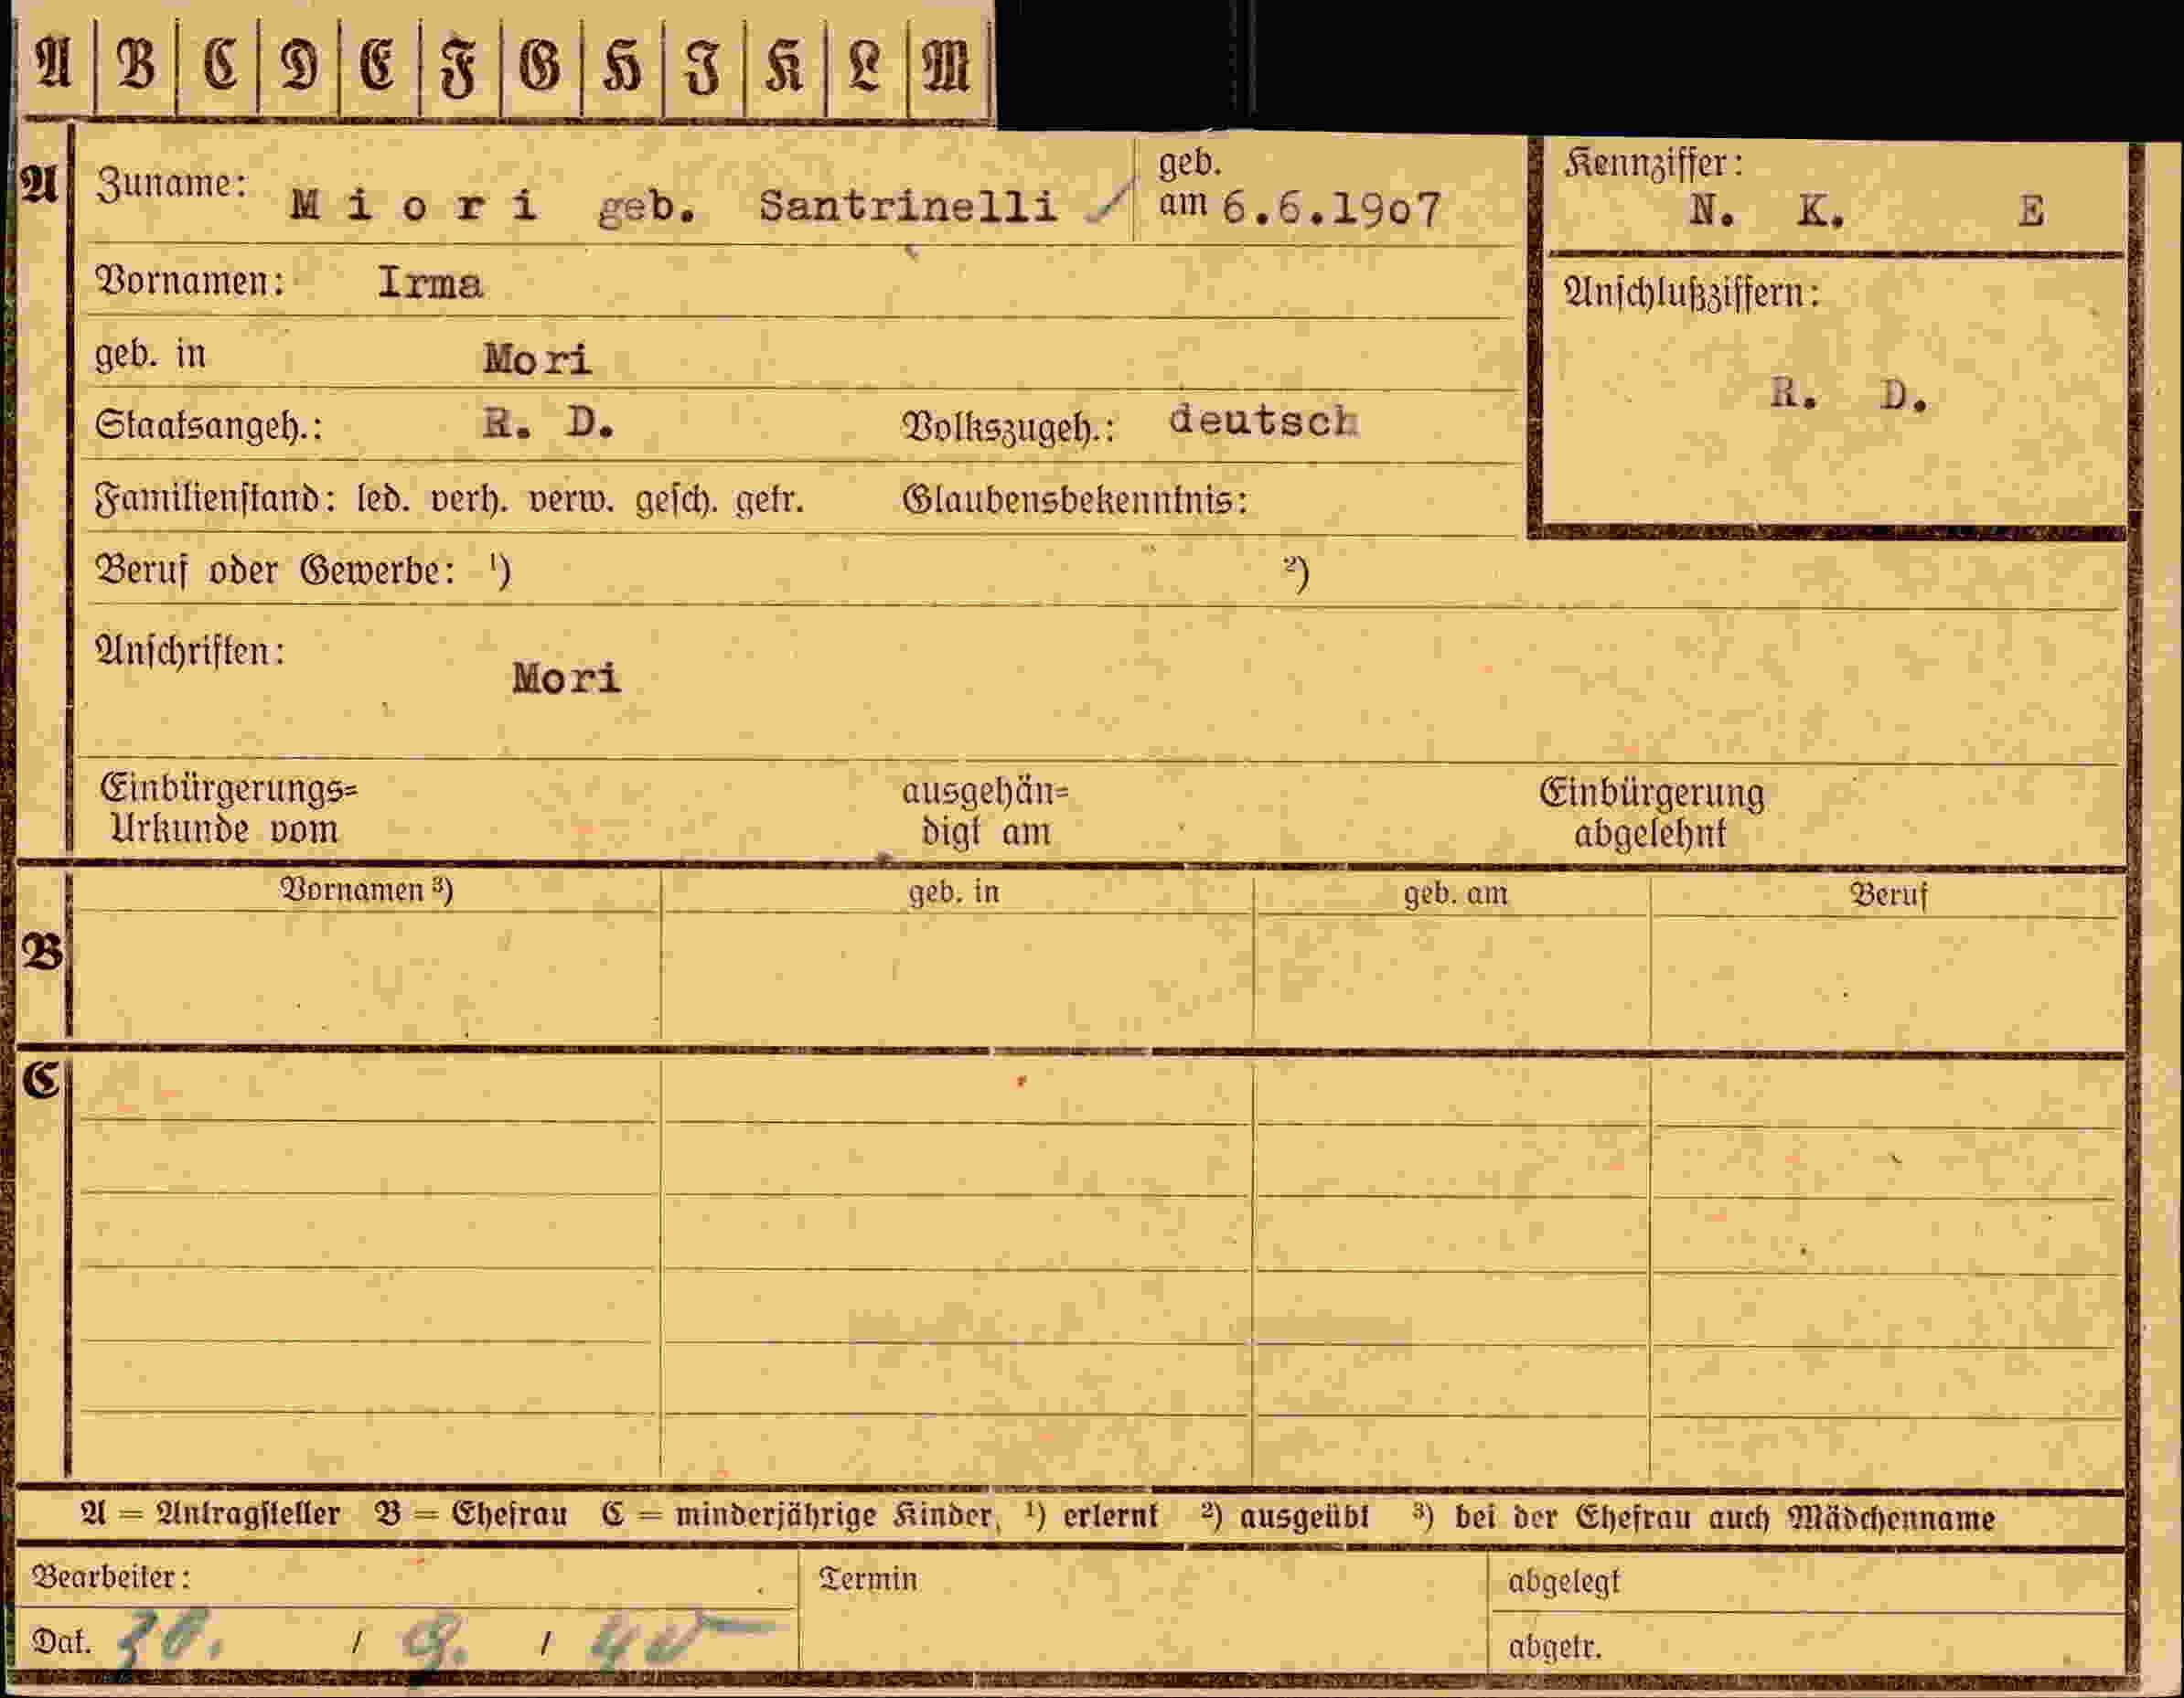 A B C D E F G H I K L M
A Zuname: Miori geb. Santrinelli geb. am 6.6.1907
Kennziffer: N. K. E
Vornamen: Irma
Anschlußziffern:
geb. in Mori
R. D.
Staatsangeh.: R. D. Volkszugeh.: deutsch
Familienstand: led. verh. verw. gesch. getr. Glaubensbekenntnis:
Beruf oder Gewerbe: ¹) ²)
Anschriften: Mori
Einbürgerungs= ausgehän= Einbürgerung
Urkunde vom digt am abgelehnt
Vornamen ³) geb. in geb. am Beruf
B
C
A = Antragsteller B = Ehefrau C = minderjährige Kinder, ¹) erlernt ²) ausgeübt ³) bei der Ehefrau auch Mädchenname
Bearbeiter: Termin abgelegt
Dat. 30. / 9. / 40 abgetr.